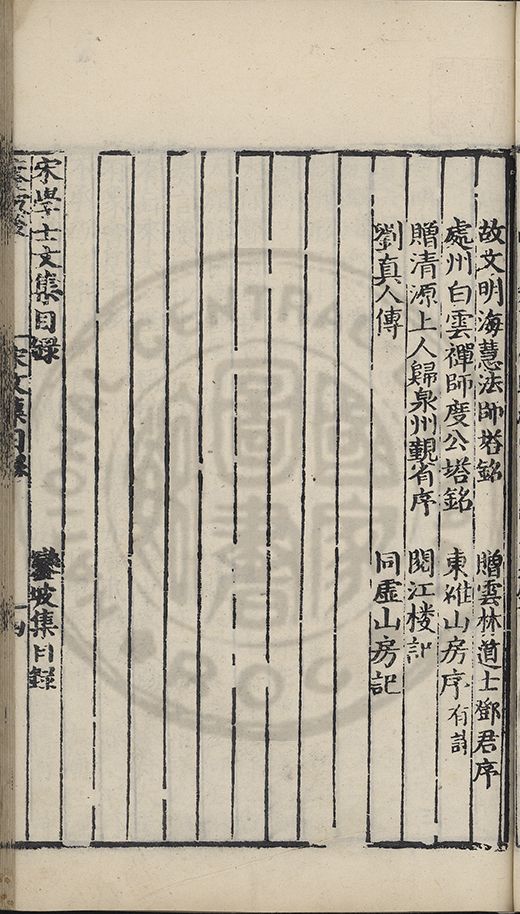 故文明海慧法師塔銘　贈雲林道士鄧君序
處州白雲禪師度公塔銘　東維山房序有詩
贈清源上人歸泉州覲省序　閱江楼記
劉真人傳　同虛山房記
宋學士文集目録　鑾坡集目録
宋文集目録